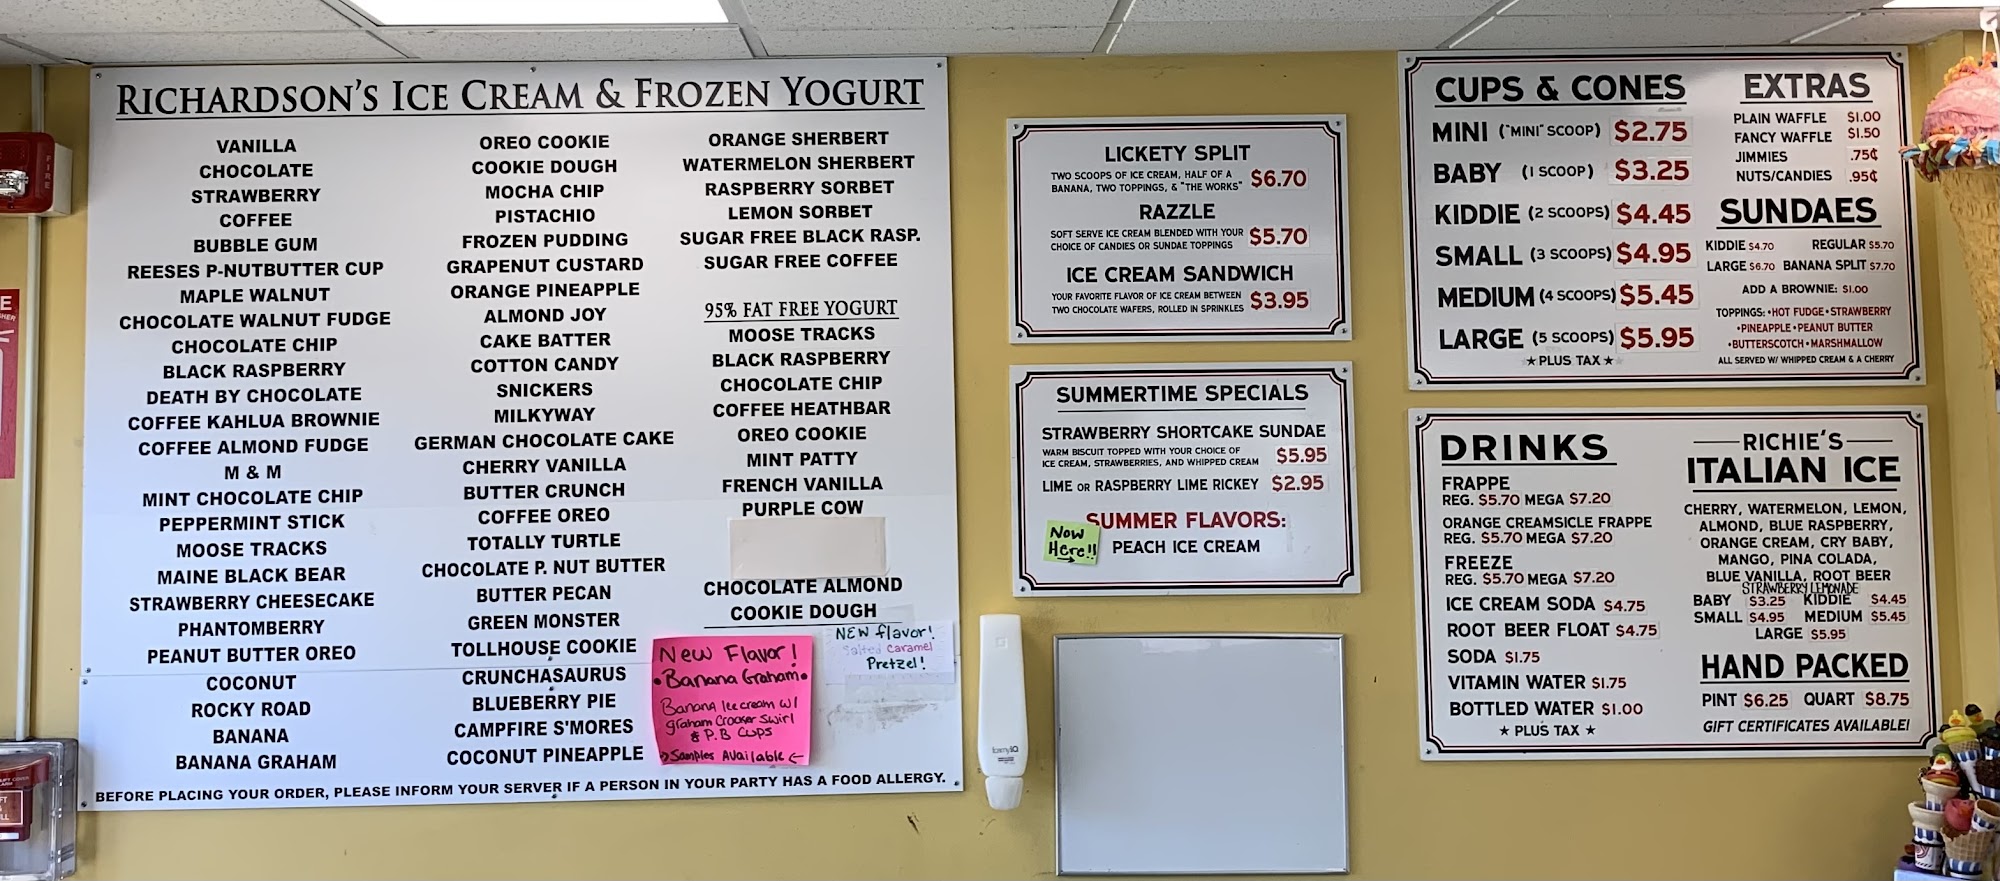 RICHARDSON'S ICE CREAM & FROZEN YOGURT
VANILLA
CHOCOLATE
STRAWBERRY
COFFEE
BUBBLE GUM
REESES P-NUTBUTTER CUP
MAPLE WALNUT
CHOCOLATE WALNUT FUDGE
CHOCOLATE CHIP
BLACK RASPBERRY
DEATH BY CHOCOLATE
COFFEE KAHLUA BROWNIE
COFFEE ALMOND FUDGE
M & M
MINT CHOCOLATE CHIP
PEPPERMINT STICK
MOOSE TRACKS
MAINE BLACK BEAR
STRAWBERRY CHEESECAKE
PHANTOMBERRY
PEANUT BUTTER OREO
COCONUT
ROCKY ROAD
BANANA
BANANA GRAHAM
OREO COOKIE
COOKIE DOUGH
MOCHA CHIP
PISTACHIO
FROZEN PUDDING
GRAPENUT CUSTARD
ORANGE PINEAPPLE
ALMOND JOY
CAKE BATTER
COTTON CANDY
SNICKERS
MILKYWAY
GERMAN CHOCOLATE CAKE
CHERRY VANILLA
BUTTER CRUNCH
COFFEE OREO
TOTALLY TURTLE
CHOCOLATE P. NUT BUTTER
BUTTER PECAN
GREEN MONSTER
TOLLHOUSE COOKIE
CRUNCHASAURUS
BLUEBERRY PIE
CAMPFIRE S'MORES
COCONUT PINEAPPLE
ORANGE SHERBERT
WATERMELON SHERBERT
RASPBERRY SORBET
LEMON SORBET
SUGAR FREE BLACK RASP.
SUGAR FREE COFFEE
95% FAT FREE YOGURT
MOOSE TRACKS
BLACK RASPBERRY
CHOCOLATE CHIP
COFFEE HEATHBAR
OREO COOKIE
MINT PATTY
FRENCH VANILLA
PURPLE COW
CHOCOLATE ALMOND
COOKIE DOUGH
New Flavor!
•Banana Graham•
Banana Ice cream w/
graham Cracker Swirl
& P.B Cups
Samples Available
NEW flavor!
Salted Caramel
Pretzel!
BEFORE PLACING YOUR ORDER, PLEASE INFORM YOUR SERVER IF A PERSON IN YOUR PARTY HAS A FOOD ALLERGY.
LICKETY SPLIT
TWO SCOOPS OF ICE CREAM, HALF OF A
BANANA, TWO TOPPINGS, & "THE WORKS" $6.70
RAZZLE
SOFT SERVE ICE CREAM BLENDED WITH YOUR
CHOICE OF CANDIES OR SUNDAE TOPPINGS $5.70
ICE CREAM SANDWICH
YOUR FAVORITE FLAVOR OF ICE CREAM BETWEEN
TWO CHOCOLATE WAFERS, ROLLED IN SPRINKLES $3.95
SUMMERTIME SPECIALS
STRAWBERRY SHORTCAKE SUNDAE
WARM BISCUIT TOPPED WITH YOUR CHOICE OF
ICE CREAM, STRAWBERRIES, AND WHIPPED CREAM $5.95
LIME OR RASPBERRY LIME RICKEY $2.95
SUMMER FLAVORS:
Now
Here!!
PEACH ICE CREAM
CUPS & CONES
MINI ("MINI" SCOOP) $2.75
BABY (1 SCOOP) $3.25
KIDDIE (2 SCOOPS) $4.45
SMALL (3 SCOOPS) $4.95
MEDIUM (4 SCOOPS) $5.45
LARGE (5 SCOOPS) $5.95
★ PLUS TAX ★
EXTRAS
PLAIN WAFFLE $1.00
FANCY WAFFLE $1.50
JIMMIES .75¢
NUTS/CANDIES .95¢
SUNDAES
KIDDIE $4.70 REGULAR $5.70
LARGE $6.70 BANANA SPLIT $7.70
ADD A BROWNIE: $1.00
TOPPINGS: •HOT FUDGE•STRAWBERRY
•PINEAPPLE•PEANUT BUTTER
•BUTTERSCOTCH•MARSHMALLOW
ALL SERVED W/ WHIPPED CREAM & A CHERRY
DRINKS
FRAPPE
REG. $5.70 MEGA $7.20
ORANGE CREAMSICLE FRAPPE
REG. $5.70 MEGA $7.20
FREEZE
REG. $5.70 MEGA $7.20
ICE CREAM SODA $4.75
ROOT BEER FLOAT $4.75
SODA $1.75
VITAMIN WATER $1.75
BOTTLED WATER $1.00
★ PLUS TAX ★
RICHIE'S
ITALIAN ICE
CHERRY, WATERMELON, LEMON,
ALMOND, BLUE RASPBERRY,
ORANGE CREAM, CRY BABY,
MANGO, PINA COLADA,
BLUE VANILLA, ROOT BEER
STRAWBERRY LEMONADE
BABY $3.25 KIDDIE $4.45
SMALL $4.95 MEDIUM $5.45
LARGE $5.95
HAND PACKED
PINT $6.25 QUART $8.75
GIFT CERTIFICATES AVAILABLE!
FIRE